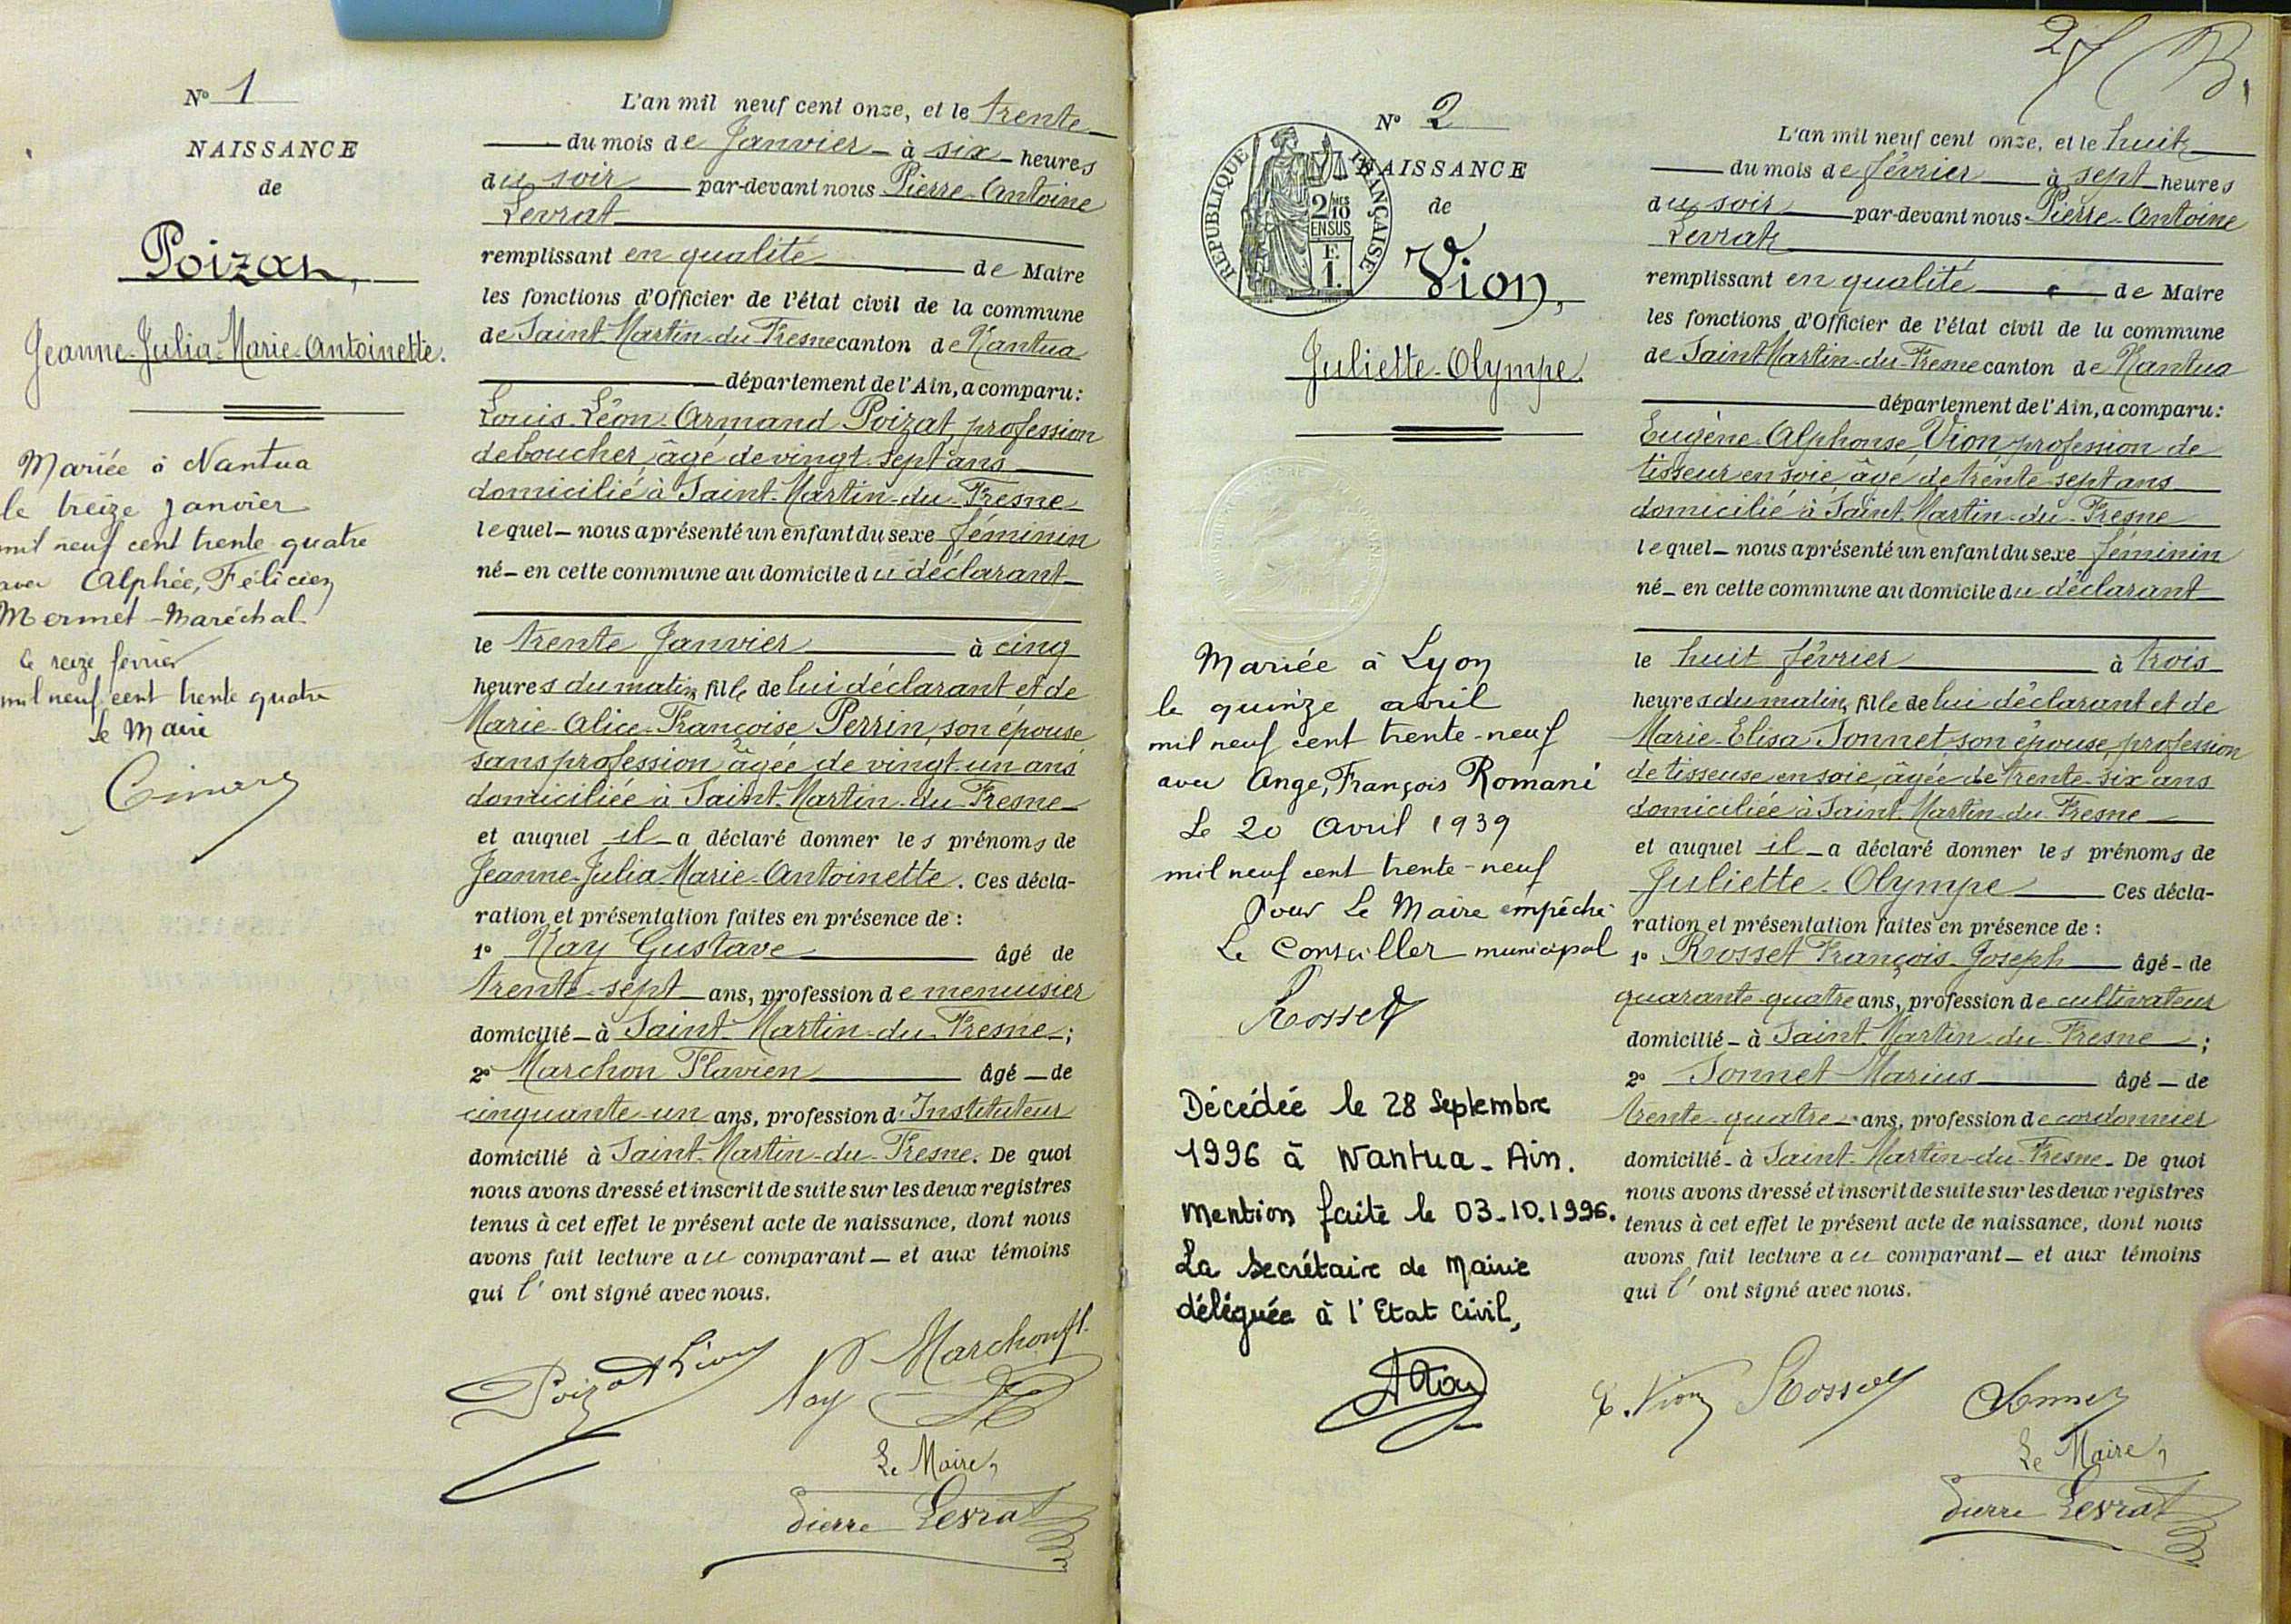 N° 1
NAISSANCE
de
Poizat,
Jeanne-Julia-Marie-Antoinette.
Mariée à Nantua
le treize janvier
mil neuf cent trente quatre
avec Alphée, Félicien
Mermet-Maréchal
le seize février
mil neuf cent trente quatre
Le Maire
L'an mil neuf cent onze, et le trente
du mois de Janvier à six heures
du soir par-devant nous Pierre-Antoine
Levrat
remplissant en qualité de Maire
les fonctions d'Officier de l'état civil de la commune
de Saint-Martin-du-Fresne canton de Nantua
département de l'Ain, a comparu :
Louis-Léon-Armand Poizat, profession
de boucher, âgé de vingt-sept ans
domicilié à Saint-Martin-du-Fresne
lequel nous a présenté un enfant du sexe féminin
né en cette commune au domicile du déclarant
le trente Janvier à cinq
heures du matin, fille de lui déclarant et de
Marie-Alice-Françoise Perrin, son épouse
sans profession âgée de vingt-un ans
domiciliée à Saint-Martin-du-Fresne
et auquel il a déclaré donner les prénoms de
Jeanne-Julia-Marie-Antoinette. Ces décla-
ration et présentation faites en présence de :
1° Nay Gustave âgé de
trente-sept ans, profession de menuisier
domicilié à Saint-Martin-du-Fresne ;
2° Marchon Flavien âgé de
cinquante-un ans, profession d'Instituteur
domicilié à Saint-Martin-du-Fresne. De quoi
nous avons dressé et inscrit de suite sur les deux registres
tenus à cet effet le présent acte de naissance, dont nous
avons fait lecture au comparant et aux témoins
qui l'ont signé avec nous.
Poizat Léon Nay Marchon fl.
Le Maire,
Pierre Levrat
2
N° 2
NAISSANCE
de
REPUBLIQUE FRANÇAISE
2/10
EN SUS
F.
1.
Vion,
Juliette-Olympe.
Mariée à Lyon
le quinze avril
mil neuf cent trente-neuf
avec Ange, François Romani
Le 20 Avril 1939
mil neuf cent trente-neuf
Pour Le Maire empêché
Le Conseiller municipal
Rosset
Décédée le 28 Septembre
1996 à Nantua - Ain.
Mention faite le 03.10.1996.
La Secrétaire de Mairie
déléguée à l'Etat Civil,
L'an mil neuf cent onze, et le huit
du mois de février à sept heures
du soir par-devant nous Pierre-Antoine
Levrat
remplissant en qualité de Maire
les fonctions d'Officier de l'état civil de la commune
de Saint-Martin-du-Fresne canton de Nantua
département de l'Ain, a comparu :
Eugène-Alphonse Vion, profession de
tisseur en soie, âgé de trente-sept ans
domicilié à Saint-Martin-du-Fresne
lequel nous a présenté un enfant du sexe féminin
né en cette commune au domicile du déclarant
le huit février à trois
heures du matin, fille de lui déclarant et de
Marie-Elisa Sonnet, son épouse, profession
de tisseuse en soie, âgée de trente-six ans
domiciliée à Saint-Martin-du-Fresne
et auquel il a déclaré donner les prénoms de
Juliette-Olympe Ces décla-
ration et présentation faites en présence de :
1° Rosset François-Joseph âgé de
quarante-quatre ans, profession de cultivateur
domicilié à Saint-Martin-du-Fresne ;
2° Sonnet Marius âgé de
trente-quatre ans, profession de cordonnier
domicilié à Saint-Martin-du-Fresne. De quoi
nous avons dressé et inscrit de suite sur les deux registres
tenus à cet effet le présent acte de naissance, dont nous
avons fait lecture au comparant et aux témoins
qui l'ont signé avec nous.
E. Vion Rosset Sonnet
Le Maire,
Pierre Levrat